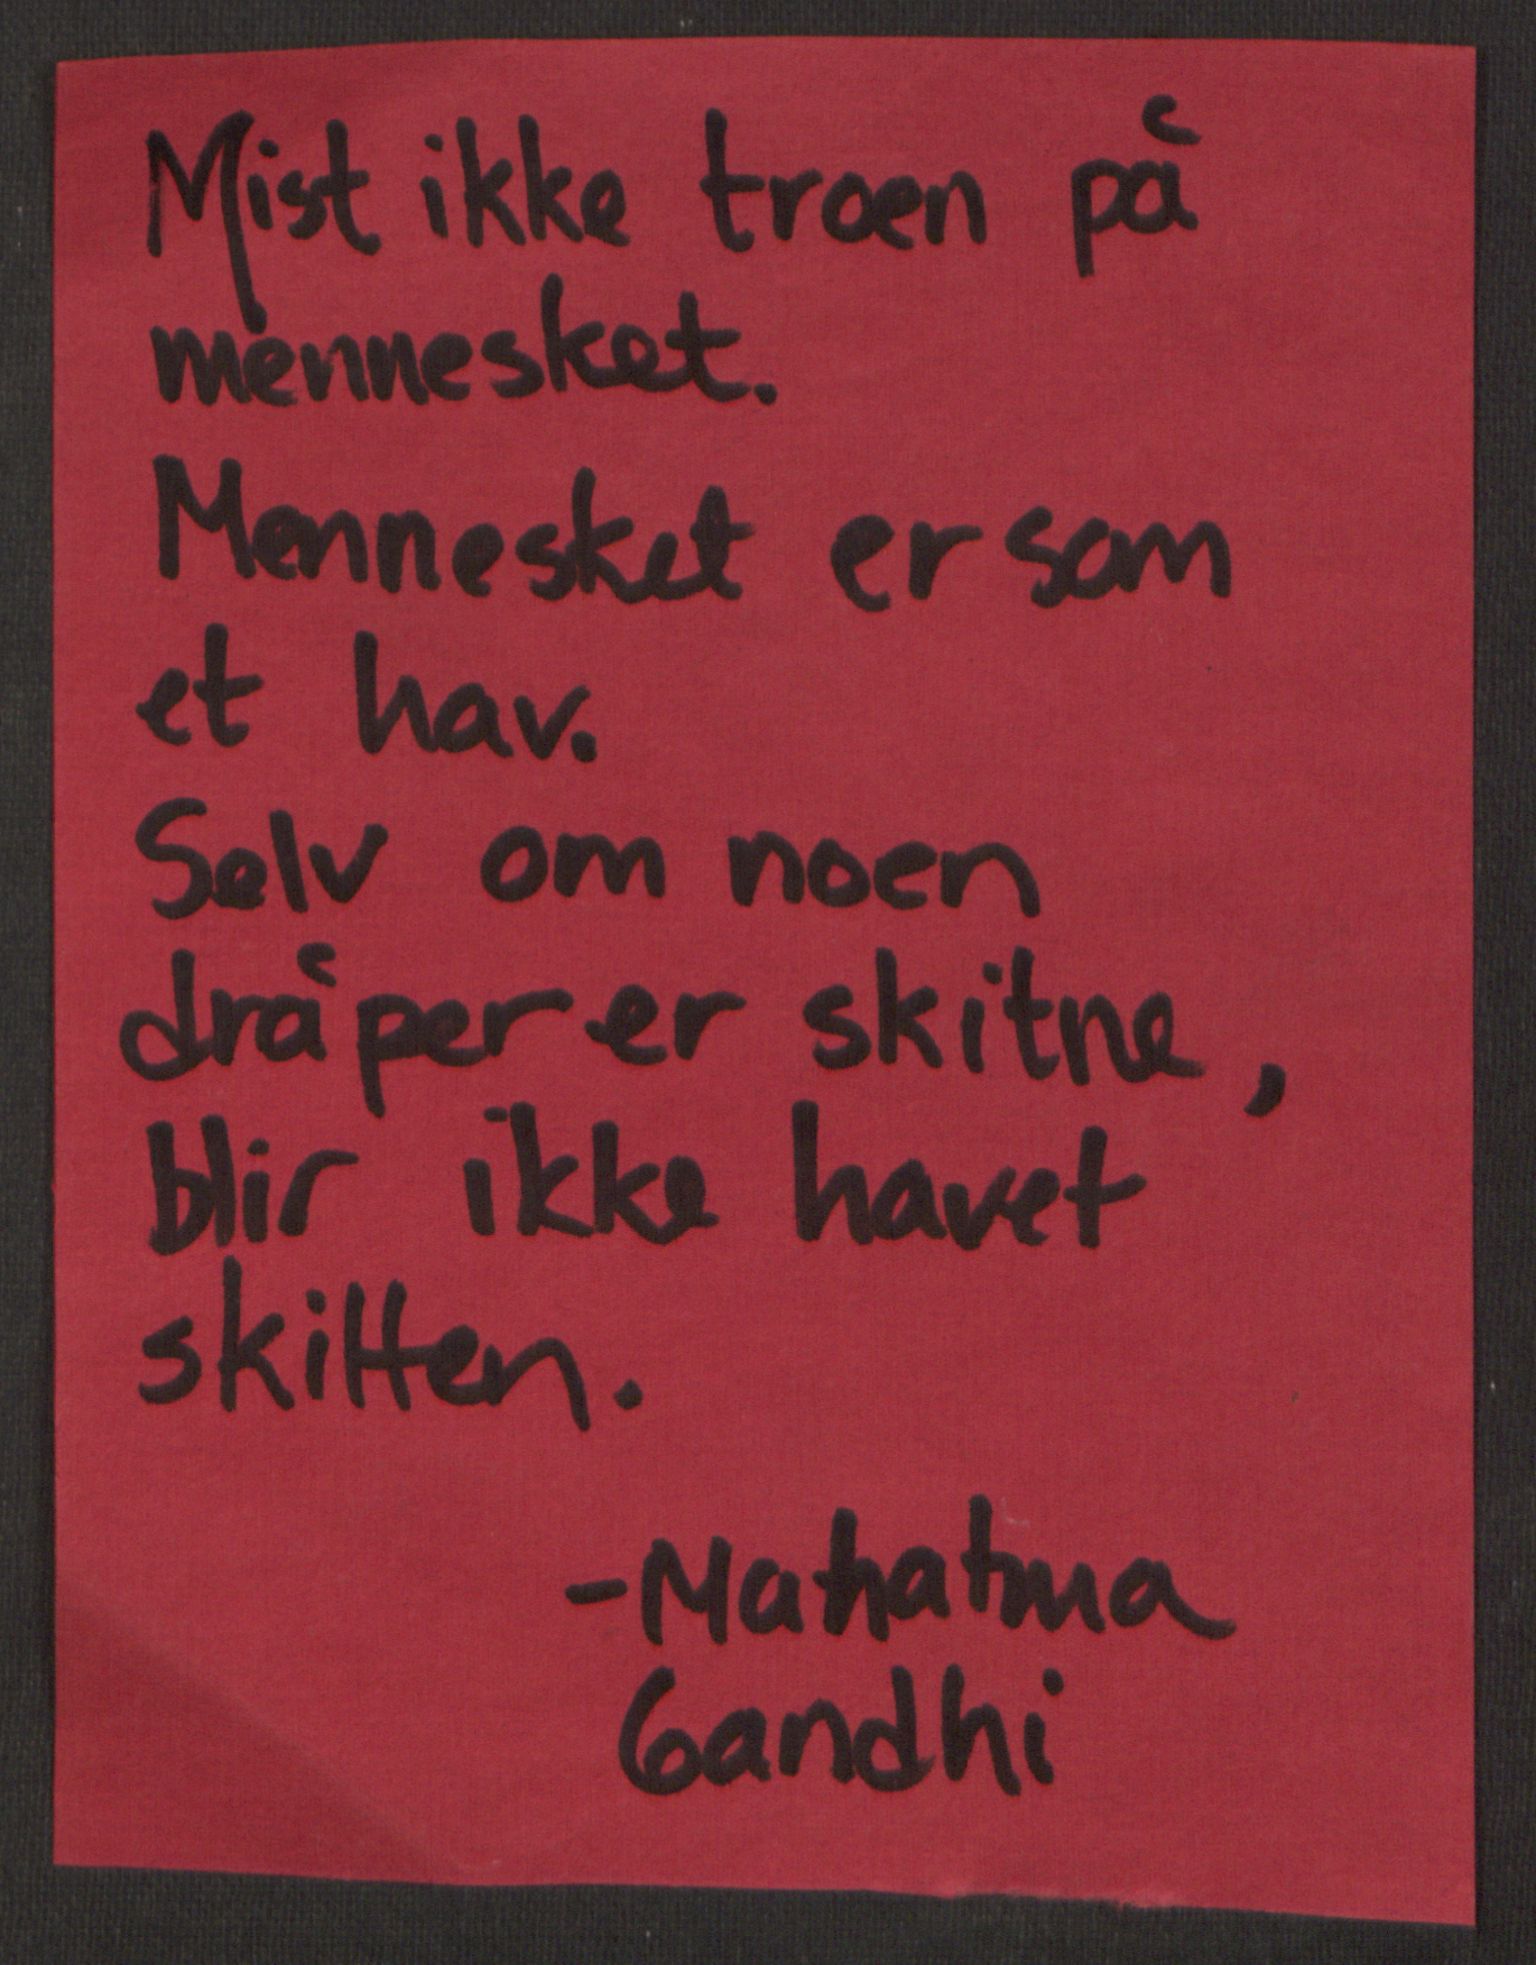 Mist ikke troen på
mennesket.
Mennesket er som
et hav.
Selv om noen
dråper er skitne,
blir ikke havet
skitten.
-Mahatma
Gandhi